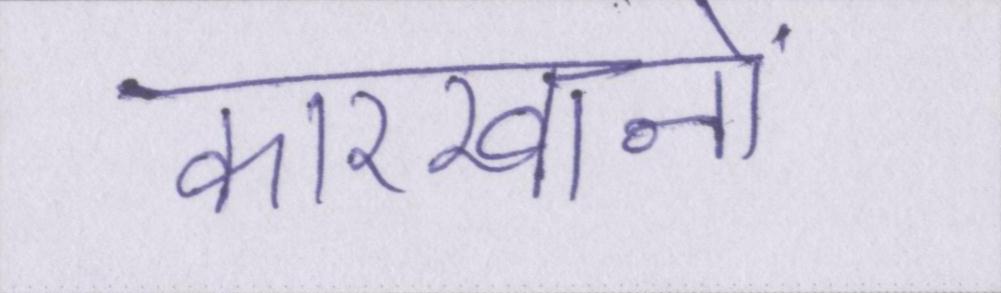 कारखानों